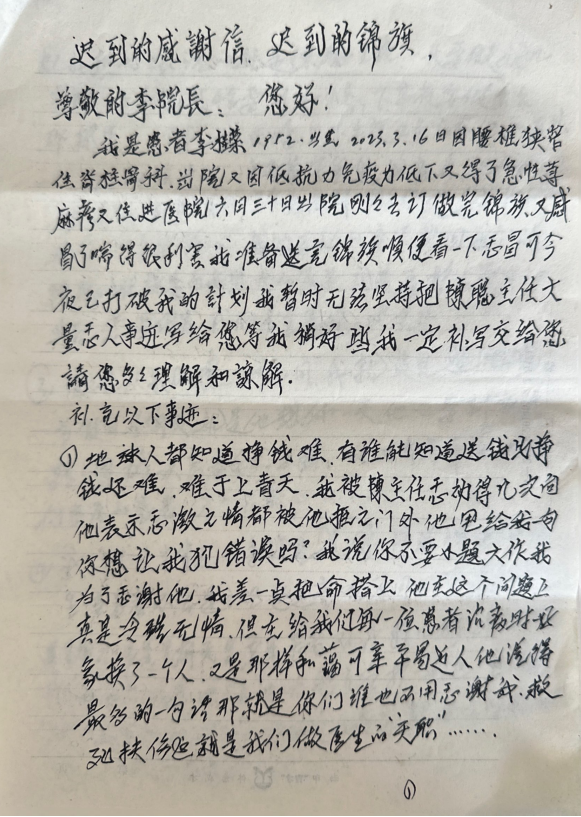 迟到的感謝信、迟到的锦旗，
尊敬的李院長： 您好！
我是患者李 1952.出生 2023.3.16日因腰椎狭管
住脊柱骨科. 出院又因低抗力免疫力低下又得了急性荨
麻疹又住进医院六月三十日出院刚刚去订做完锦旗又感
冒了喘得很利害我准备送完锦旗顺便看一下感冒可今
夜已打破我的計划我暂时无法坚持把陳聪主任大
量感人事迹写给您等我稍好些我一定补写交给您
請您多多理解和諒解.
补充以下事迹：
① 地球人都知道挣钱难、有谁能知道送钱比挣
钱还难、难于上青天、我被陳主任感动得几次向
他表示感激之情都被他拒之门外他更给我一句
你想让我犯错误吗？我说你不要小题大作我
为了感谢他、我差一点把命搭上 他在这个问题上
真是冷酷无情、但在给我们每一位患者治病时好
象换了一个人、又是那样和蔼可亲平易近人他说得
最多的一句话那就是你们谁也不用感谢我、救
死扶伤这就是我们做医生的“天职”……
①